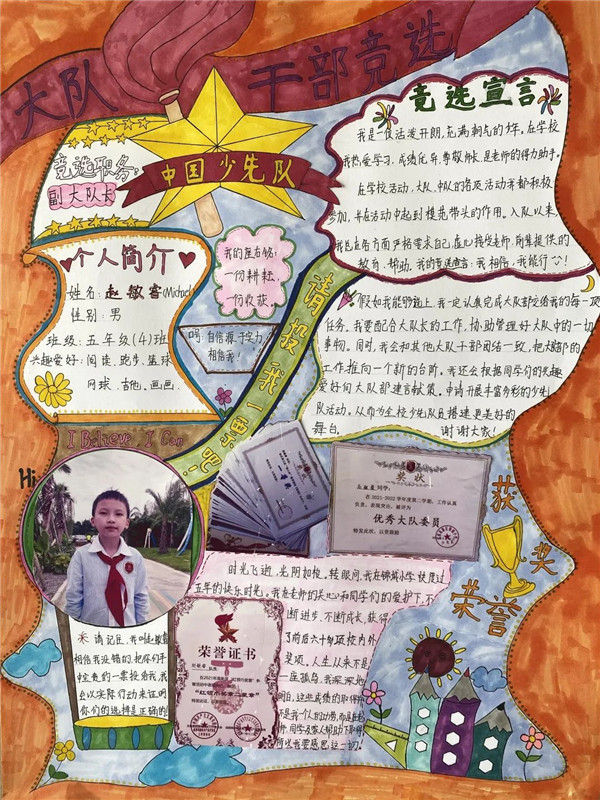 大队干部竞选
竞选职务：
副大队长
中国少先队
竞选宣言
我是一位活泼开朗，充满朝气的少年。在学校
我热爱学习，成绩优异，尊敬师长，是老师的得力助手。
在学校活动，大队、中队的各项活动我都积极
参加，并在活动中起到模范带头的作用。入队以来，
教育、帮助。我的竞选宣言：我相信，我能行！
个人简介
姓名：赵敏睿(Michael)
性别：男
班级：五年级(4)班
兴趣爱好：阅读、跑步、篮球
网球、吉他、画画
我的座右铭：
一份耕耘，
一份收获。
口号：自信源于实力，
相信我！
请投我一票吧！
假如我能够当上，我一定认真完成大队部交给我的每一项
任务。我要配合大队长的工作，协助管理好大队中的一切
事物。同时，我会和其他大队干部团结一致，把大队部的
工作推向一个新的台阶。我还会根据同学们的兴趣
爱好向大队部建言献策。申请开展丰富多彩的少先
队活动，从而为全校少先队员搭建更美好的
舞台。 谢谢大家！
I Believe, I Can
Hi
奖状
同学：
在2021-2022学年度第二学期，工作认真
负责，表现突出，被评为
优秀大队委员
特发此状，以资鼓励
获奖
荣誉
时光飞逝，光阴如梭，转眼间，我在锦城小学快度过
五年的快乐时光。我在老师的关心和同学们的爱护下，不
断进步，不断成长，获得
了前后六十多项校内外
奖项。人生从来不是
一座孤岛，我深深地
明白，这些成绩的取得不
荣誉证书
请记住，我叫赵敏睿
相信我没错的，把你们手
中宝贵的一票投给我，我
会以实际行动来证明
你们的选择是正确的